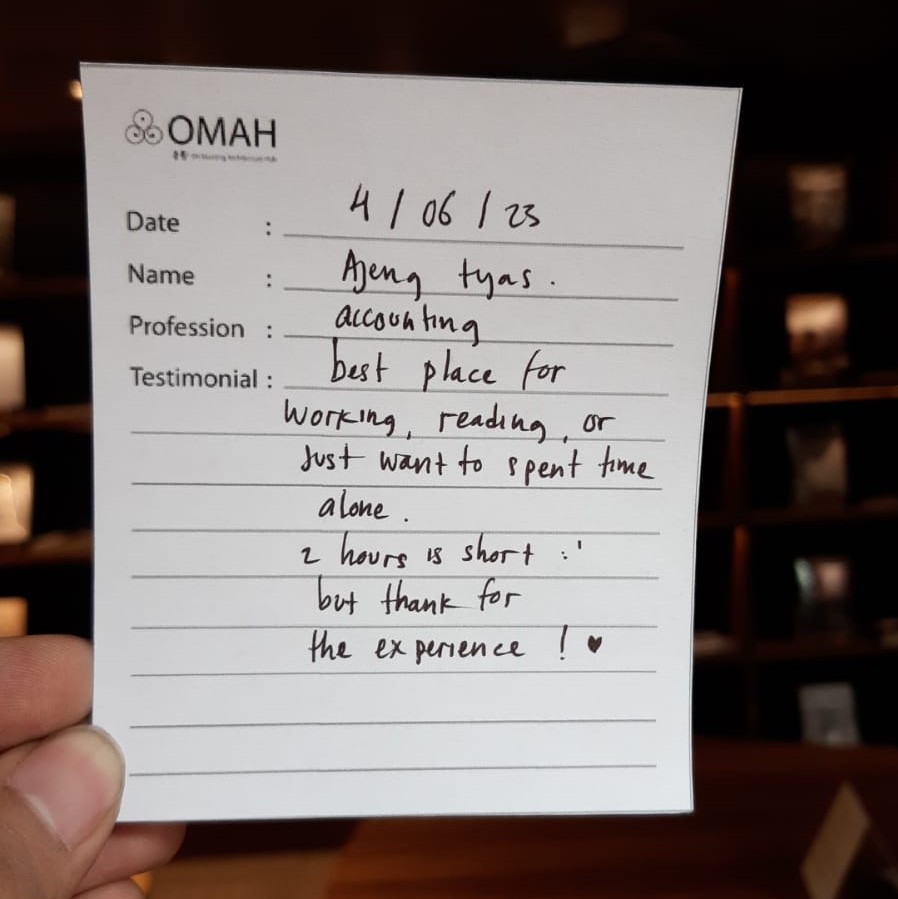 OMAH
Date : 4 / 06 / 23
Name : Ajeng tyas.
Profession : accounting
Testimonial : best place for
working, reading, or
Just want to spent time
alone.
2 hours is short :'
but thank for
the experience ! ♥